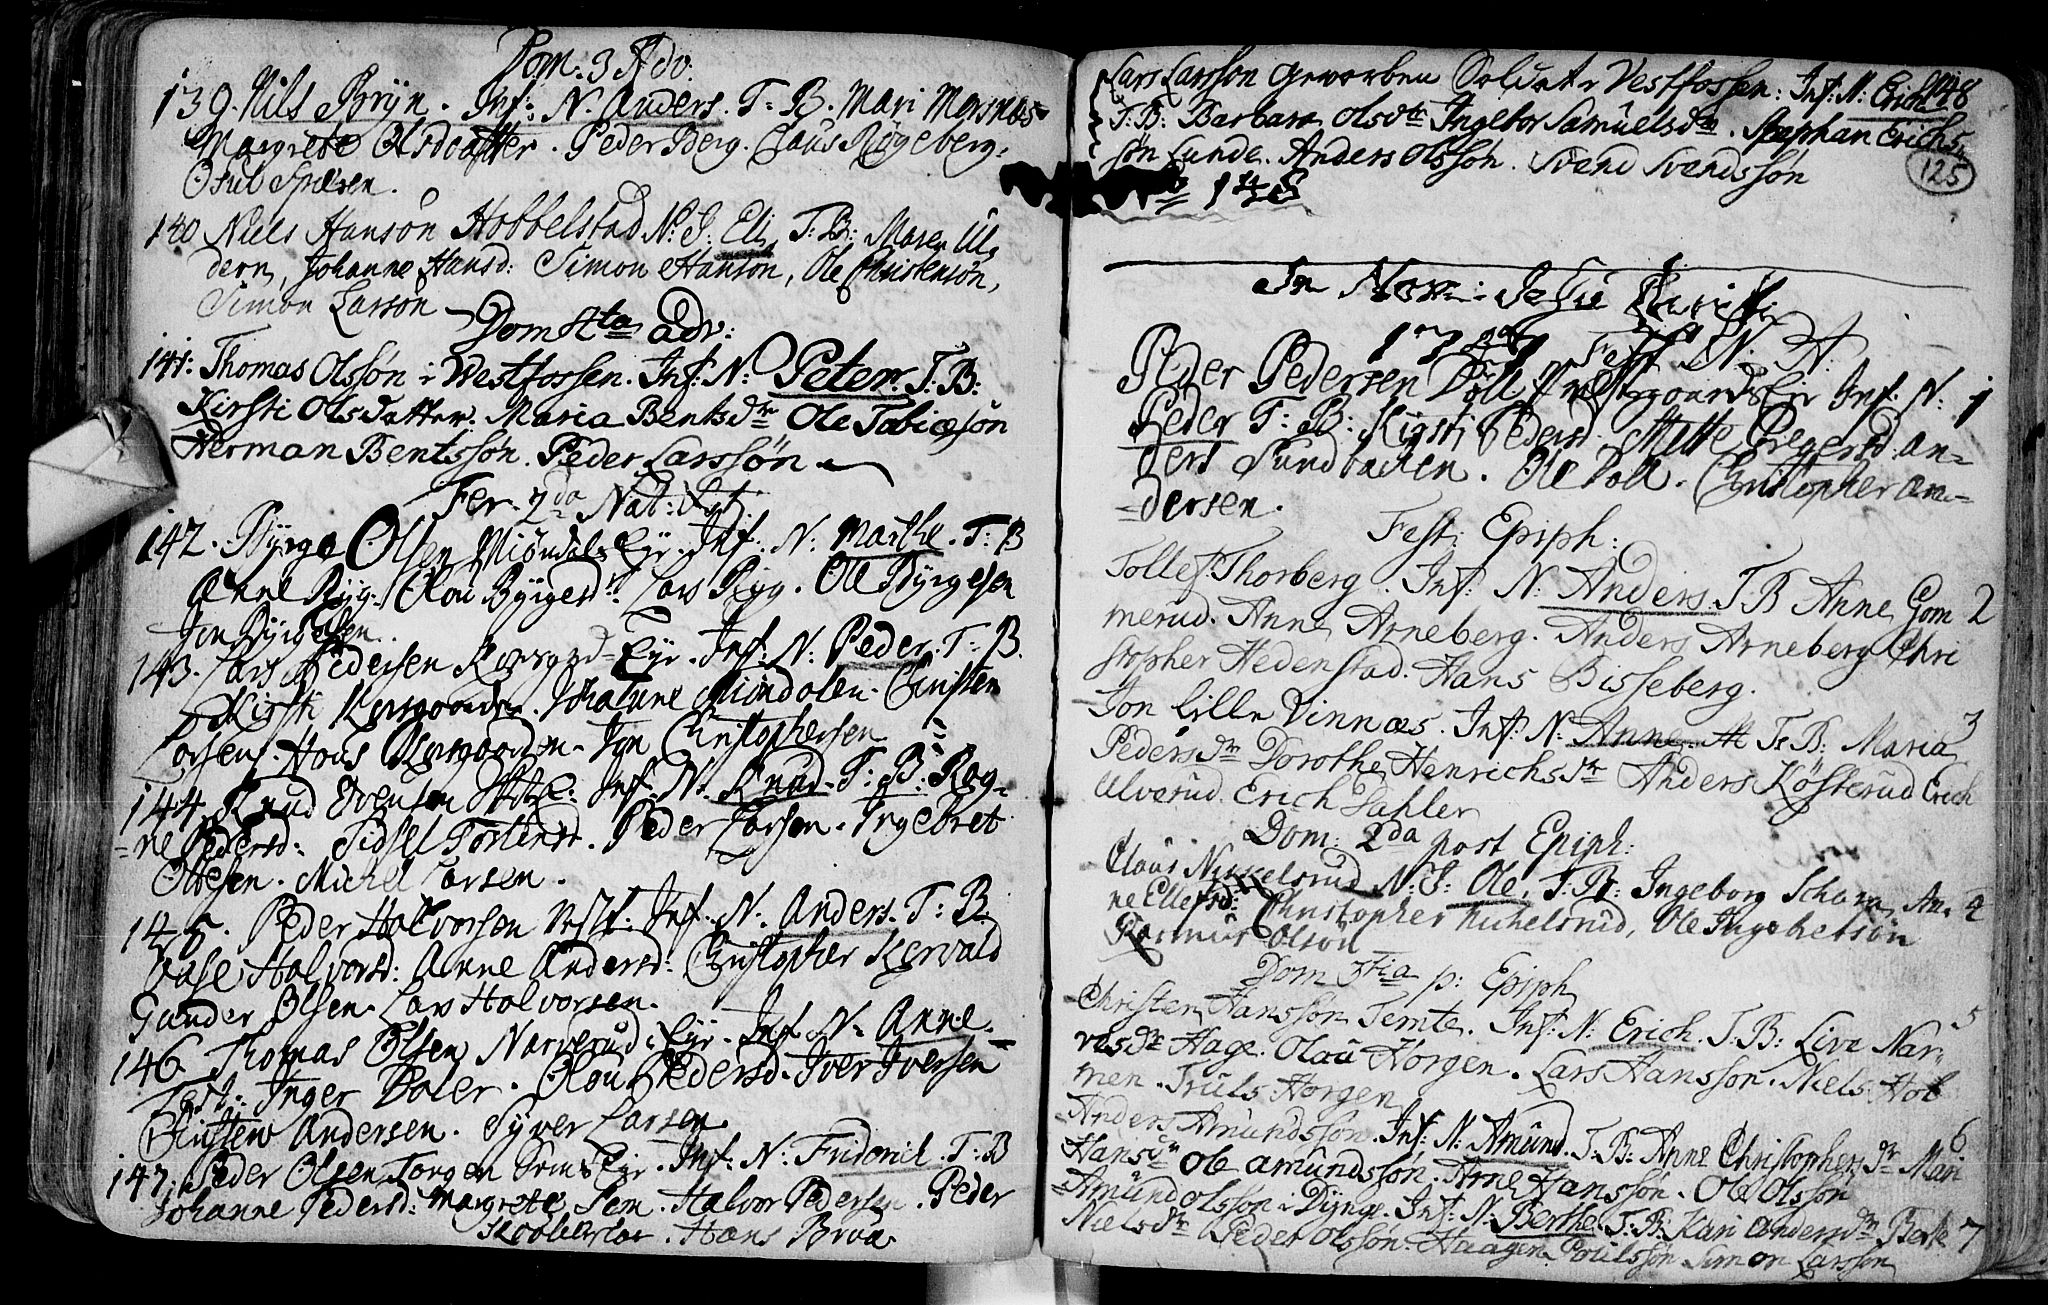 Dom. 3 Adv.
139. Nils Bryn. Inf: N. Anders. T: B. Mari Mæsnæs
Margrete Olsdaatter. Peder Berg. Claus Røgeberg.
Osul
140 Niels Hansøn Hobbelstad N: I: Eli, T: B: Maren Ul
dern, Johanne Hansd: Simon Hansøn, Ole Christensøn,
Simon Larsøn
Dom 4ta adv:
141: Thomas Olssøn i Westfossen. Inf: N: Peter. T: B:
Kirsti Olsdatter. Maria Bentsdtr Ole Tobiæsøn
Herman Bentssøn. Peder Larssøn
Fer. 2da Nat:
142. Byrge Olsen Miøndal Eger. Inf: N. Marthe. T: B
Anne Ryg. Olou Bÿrgesd: Lars Ryg. Ole Byrgesen
Jon Byrgesen.
143. Lars Pedersen Korsgrd Eyr. Inf: N: Peder. T: B.
Kirsti Korsgaarden. Johanne Miøndalen. Christen
Larsen. Hans Korsgaarden. Jon Christophersen
144. Knud Evensen Inf: N. Knud. T: B: Rog=
=ne Pedersd: Sidsel Torstensd. Peder Larsen. Ingebret
Olsen. Michel Larsen.
145. Peder Halvorsen Vestf: Inf. N. Anders. T: B.
Aase Halvorsd: Anne Andersd: Christopher
Gunder Olsen. Lars Halvorsen.
146 Thomas Olsen Narverud Eyr. Inf. N. Anne.
Test: Inger Doler. Olou Pedersd. Iver Iversen
Christen Andersen. Syver Larsen
147. Peder Olsen Torgen Eyr. Inf: N: Fridrich. T: B
Johanne Pedersd: Margrete Sem. Halvor Pedersen. Peder
Hobbelstad. Hans Brua
Lars Larssøn geworben Soldat i Vestfossen: Inf: N: Erich 148
T: B: Barbara Olsdtr Ingebor Samuelsdtr. Stephan Erichs
søn Lunde. Anders Olssøn. Svend Svendssøn
125
148
In Nom: Jesu Christi
Fest N: A:
Peder Pedersen Doll Eyr Inf: N: 1
Peder T: B: Kirsti Pedersd. Mette Gregersd. An=
ders Sundbacken. Ole Doll. Christopher An=
=dersen.
Fest: Epiph:
Tollef Thorberg. Inf: N: Anders. T B Anne Gom 2
merud. Anne Arneberg. Anders Arneberg. Chri
stopher Hedenstad. Hans Bisseberg.
Jon Lille Vinnæs. Inf: N: Anne. T: B: Maria 3
Pedersdtr Dorothe Henrichsdtr Anders Kösterud Erich
Ulverud. Erich Dahler
Dom: 2da post Epiph:
Claus Nickelsrud N: I: Ole, T: B: Ingeborg Scharn, An= 4
ne Ellefsd: Christopher Nichelsrud, Ole Ingebretsøn
Rasmus Olsøn
Dom 3tia p: Epiph
Christen Hanssøn Temte. Inf: N: Erich. T: B: Live Nar= 5
vesdtr Hage. Olau Horgen. Lars Hanssøn. Niels Hol
men. Truls Horgen
Anders Amundssøn Inf: N: Amund. T: B: Anne Christophersdtr Mari 6
Hansdtr Ole Amundssøn. Arne Hanssøn. Ole Olssøn
Amund Olssøn i Dynge. Inf: N: Berthe. T: B: Kari Andersdtr Berte 7
Nielsdtr Peder Olssøn. Haagen Poulssøn Simon Larssøn